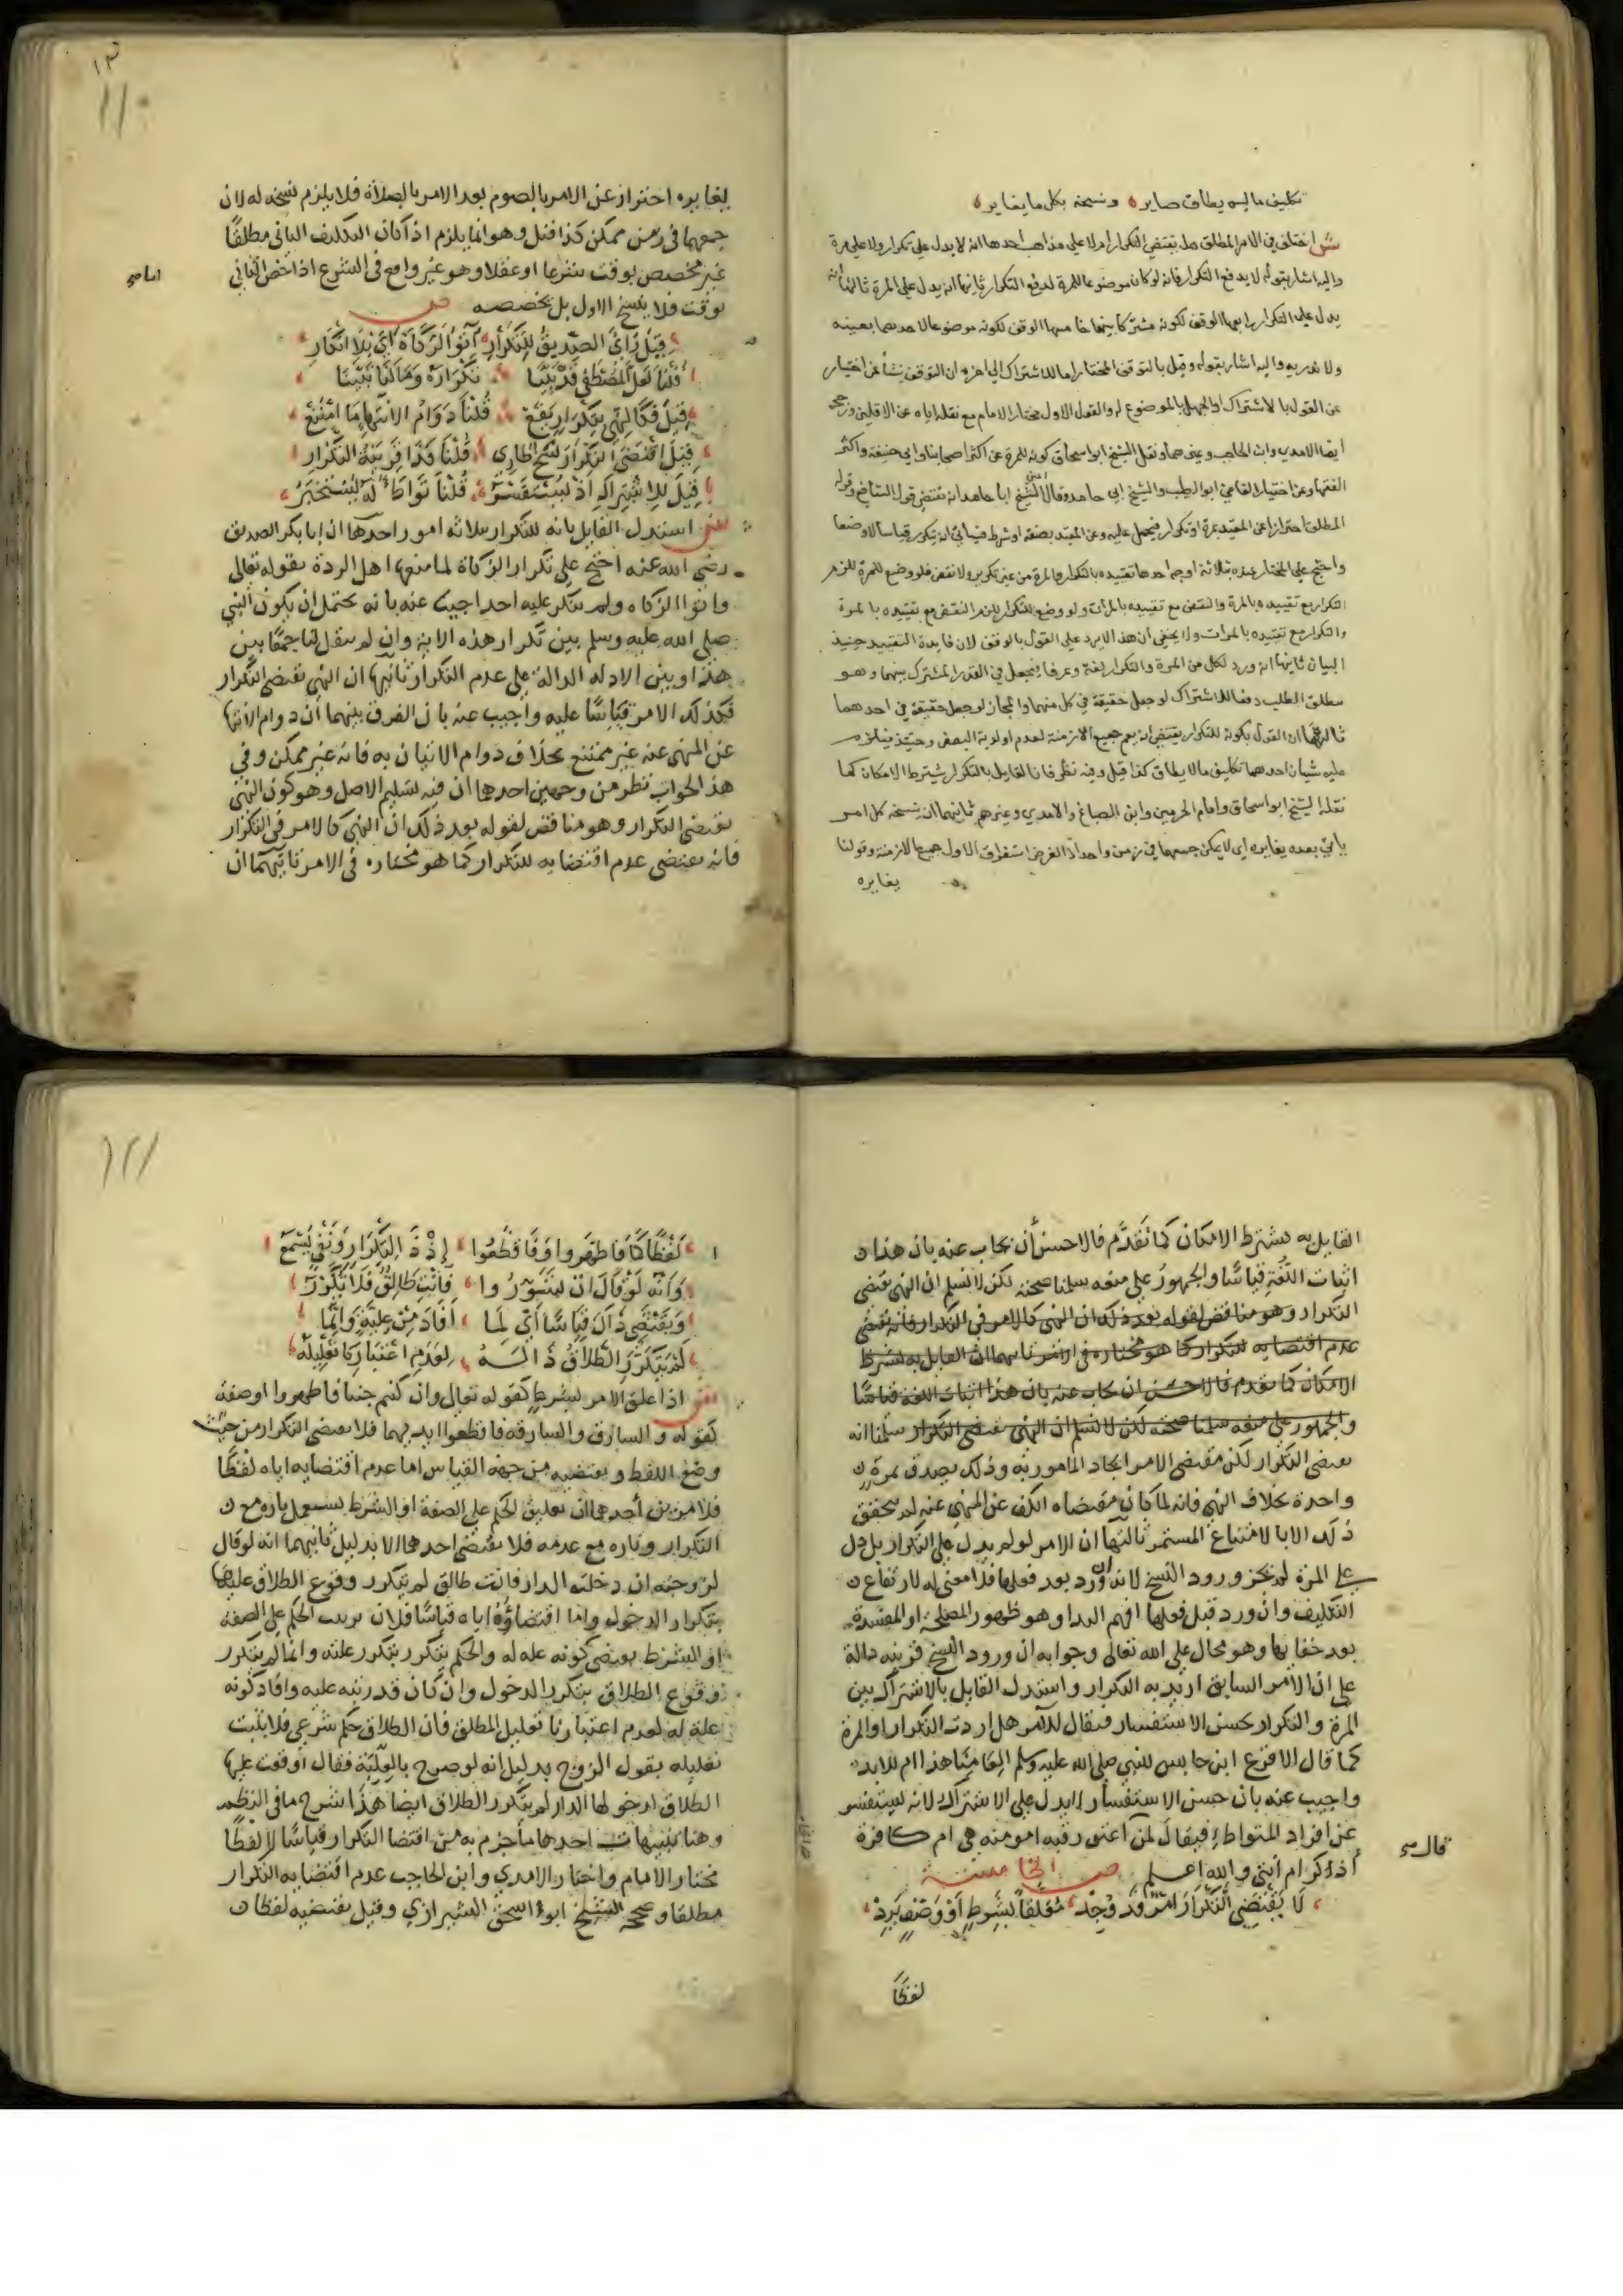 تكليف ما ليس يطاق صاير ونسخه بكل ما يغاير
ش اختلف في الامر المطلق هل يقتضي التكرار ام لا على مذاهب احدها انه لا يدل على تكرار ولا على مرة
واليه اشار بقوله لا يدفع التكرار فانه لو كان موضوعا للمرة لدفع التكرار ثانيها انه يدل على المرة ثالثها انه
يدل على التكرار رابعها الوقف لكونه مشتركا بينهما خامسها الوقف لكونه موضوعا لاحدهما بعينه
ولا ندريه واليه اشار بقوله وقيل بالتوقف المختار اما للاشتراك الى اخره ان التوقف نشأ عن اختيار
من القول بالاشتراك او الجهل بالموضوع له والقول الاول مختار الامام مع نقله اياه عن الاقلين ورجحه
ايضا الامدي وابن الحاجب وغيرهما ونقل الشيخ ابو اسحاق كونه للمرة عن اكثر اصحابنا وابي حنيفة واكثر
الفقها وعن اختيار القاضي ابو الطيب والشيخ ابي حامد وقال ان الشيخ ابا حامد انه مقتضى قول الشافعي وقوله
المطلق احترازا عن المقيد بمرة او تكرار فيحمل عليه وعن المقيد بصفة او شرط فسيأتي انه يتكرر قياسا لا وضعا
واحتج على المختار عنده بثلاثة اوجه احدها تقييده بالتكرار والمرة من غير تكرير ولا نقض فلو وضع للمرة للزم
التكرار مع تقييده بالمرة والنقض مع تقييده بالمرات ولو وضع للتكرار للزم النقض مع تقييده بالمرة
والتكرار مع تقييده بالمرات ولا يخفى ان هذا لا يرد على القول بالوقف لان فايدة التقييد حينيذ
البيان ثانيها انه ورد لكل من المرة والتكرار لغة وعرفا فيجعل في القدر المشترك بينهما وهو
مطلق الطلب دفعا للاشتراك لو جعل حقيقة في كل منهما والمجاز لو جعل حقيقة في احدهما
ثالثها ان القول بكونه للتكرار يقتضي ان يعم جميع الازمنة لعدم اولوية البعض وحينئذ فيلزم
عليه شيان احدهما تكليف ما لا يطاق كذا قيل وفيه نظر فان القايل بالتكرار يشترط الامكان كما
نقله الشيخ ابو اسحاق وامام الحرمين وابن الصباغ والامدي وغيرهم ثانيهما ان ينسخه كل امر
ياتي بعده يغايره اي لا يمكن جمعهما في زمن واحد اذ الفرض استغراق الاول جميع الازمنة وقولنا
يغايره
١١٠
يغايره احتراز عن الامر بالصوم بعد الامر بالصلاة فلا يلزم نسخه له لان
جمعهما في زمن ممكن كذا قيل وهو انما يلزم اذا كان التكليف الثاني مطلقا
غير مخصص بوقت شرعا او عقلا وهو غير واقع في الشرع اما اذا خص الثاني
بوقت فلا ينسخ الاول بل يخصصه ص
قيل رأى الصديق للتكرار آتوا الزكاة اي بلا انكار
قلنا لعل المصطفى قد بينا تكراره وما لنا تبينا
قيل فكالنهي بتكرار يقع قلنا دوام الانتها ما امتنع
قيل اقتضى التكرار نسخ طاري قلنا فذا قرينة التكرار
قيل للاشتراك اذ يستفسر قلنا تواطأ له يستخبر
ش استدل القايل بانه للتكرار بثلاثه امور احدها ان ابا بكر الصديق
رضي الله عنه احتج على تكرار الزكاة لما منعها اهل الردة بقوله تعالى
واتوا الزكاه ولم ينكر عليه احد اجيب عنه بانه يحتمل ان يكون النبي
صلى الله عليه وسلم بين تكرار هذه الاية وان لم ينقل لنا جمعا بين
هذا وبين الادله الدالة على عدم التكرار ثانيها ان النهي يقتضي التكرار
فكذلك الامر قياسا عليه واجيب عنه بان الفرق بينهما ان دوام الانتها
عن المنهي عنه غير ممتنع بخلاف دوام الاتيان به فانه غير ممكن وفي
هذا الجواب نظر من وجهين احدهما ان فيه تسليم الاصل وهو كون النهي
يقتضي التكرار وهو مناقض لقوله بعد ذلك ان النهي كالامر في التكرار
فانه يقتضي عدم اقتضايه للتكرار كما هو مختاره في الامر ثانيهما ان
القايل به يشترط الامكان كما تقدم فالاحسن أن يجاب عنه بان هذا
اثبات اللغة قياسا والجمهور على منعه سلمنا صحته لكن لا نسلم ان النهي يقتضي
التكرار وهو مناقض لقوله بعد ذلك ان النهي كالامر في التكرار فانه يقتضي
عدم اقتضايه للتكرار كما هو مختاره في الامر ثانيهما ان القايل به يشترط
الامكان كما تقدم فالاحسن ان يجاب عنه بان هذا اثبات اللغة قياسا
والجمهور على منعه سلمنا صحته لكن لا نسلم ان النهي يقتضي التكرار سلمنا انه
يقتضي التكرار لكن مقتضى الامر ايجاد المامور به وذلك يصدق بمرة
واحدة بخلاف النهي فانه لما كان مقتضاه الكف عن المنهي عنه لم يتحقق
ذلك الا بالامتناع المستمر ثالثها ان الامر لو لم يدل على التكرار بل دل
على المرة لم يجز ورود النسخ لانه ان ورد بعد فعلها فلا معنى له لارتفاع
التكليف وان ورد قبل فعلها افهم البدا وهو ظهور المصلحة او المفسدة
بعد خفايها وهو محال على الله تعالى وجوابه ان ورود النسخ قرينه دالة
على ان الامر السابق اريد به التكرار واستدل القايل بالاشتراك بين
المرة والتكرار بحسن الاستفسار فيقال للآمر هل اردت التكرار او المرة
كما قال الاقرع ابن حابس للنبي صلى الله عليه وسلم العامنا هذا ام للابد
واجيب عنه بان حسن الاستفسار لا يدل على الاشتراك لانه يستفسر
عن افراد المتواطئ فيقال لمن قال اعتق رقبه امومنه هي ام كافرة
أذكر ام أنثى والله اعلم ص الخامسة
لا يقتضي التكرار امر قد وجد معلقا بشرط أو وصف يرد
لفظا
١١١
لفظا كما فاطهروا وفاقطعوا إذ ذا التكرار ونفي يسمع
وانه لو قال ان بتسوروا فانت طالق فلا تكرر
ويقتضي ذاك قياسا أي لما أفاد من علية وانما
لم يتكرر الطلاق ذا له لعدم اعتبارنا تعليله
ش اذا علق الامر بشرط كقوله تعالى وان كنتم جنبا فاطهروا او صفة
كقوله والسارق والسارقه فاقطعوا ايديهما فلا يقتضي التكرار من حيث
وضع اللفظ ويقتضيه من جهة القياس اما عدم اقتضايه اياه لفظا
فلامرين أحدهما ان تعليق الحكم على الصفة او الشرط يستعمل تارة مع
التكرار وتاره مع عدمه فلا يقتضي احدهما الا بدليل ثانيهما انه لو قال
لزوجته ان دخلت الدار فانت طالق لم يتكرر وقوع الطلاق عليها
بتكرار الدخول واما اقتضاؤه اياه قياسا فلان ترتيب الحكم على الصفه
او الشرط يقتضي كونه علة له والحكم يتكرر بتكرر علته وانما لم يتكرر
وقوع الطلاق بتكرر الدخول وان كان قد رتبه عليه وافاد كونه
علة له لعدم اعتبارنا تعليل المطلق فان الطلاق حكم شرعي فلا يثبت
تعليله بقول الزوج بدليل انه لو صرح بالعلية فقال أوقعت عليها
الطلاق لدخولها الدار لم يتكرر الطلاق ايضا هذا شرح ما في النظم
وهنا تنبيهات احدها ما جزم به من اقتضا التكرار قياسا لا لفظا
مختار الامام واختار الامدي وابن الحاجب عدم اقتضايه التكرار
مطلقا وصححه الشيخ ابو اسحق الشيرازي وقيل يقتضيه لفظا